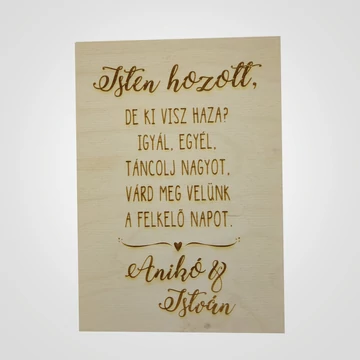 Isten hozott,
DE KI VISZ HAZA?
IGYÁL, EGYÉL,
TÁNCOLJ NAGYOT,
VÁRD MEG VELÜNK
A FELKELŐ NAPOT.
Anikó &
István